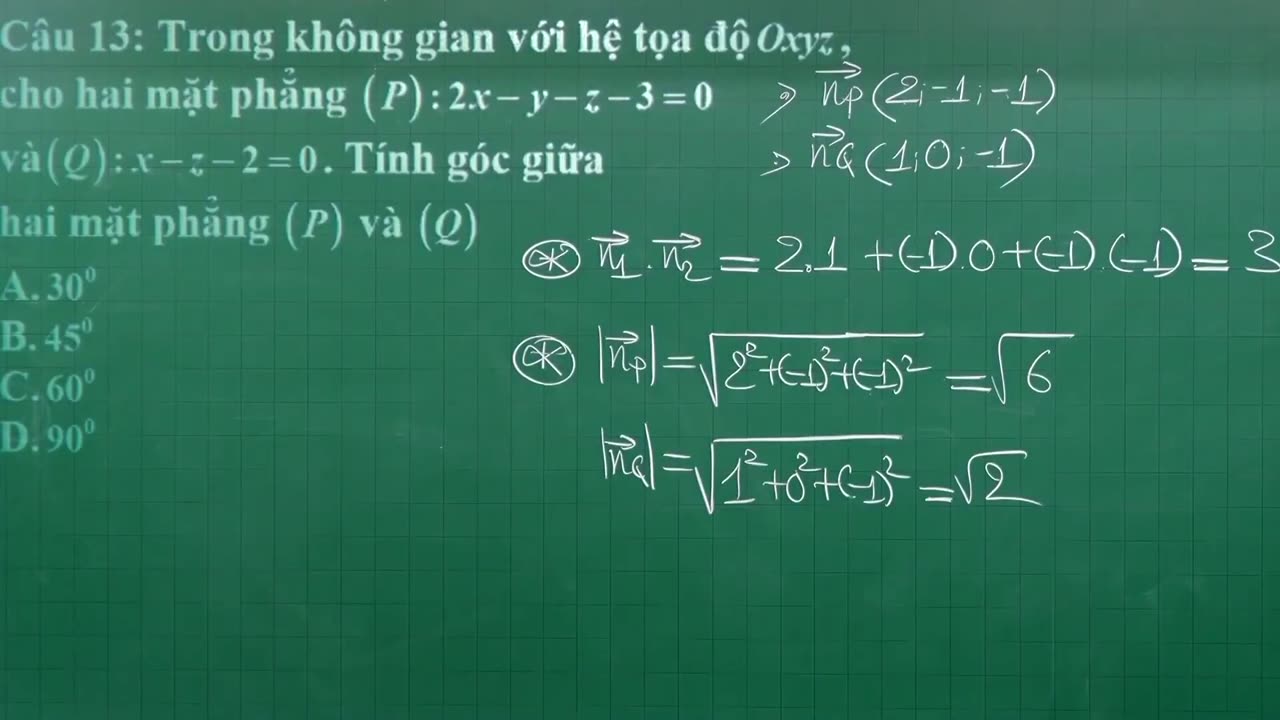 Câu 13: Trong không gian với hệ tọa độ Oxyz,
cho hai mặt phẳng (P): 2x − y − z − 3 = 0
và (Q): x − z − 2 = 0. Tính góc giữa
hai mặt phẳng (P) và (Q)
A. 30⁰
B. 45⁰
C. 60⁰
D. 90⁰
n⃗P (2; -1; -1)
n⃗Q (1; 0; -1)
⊛ n⃗₁ . n⃗₂ = 2.1 + (-1).0 + (-1).(-1) = 3
⊛ |n⃗P| = √(2² + (-1)² + (-1)²) = √6
|n⃗Q| = √(1² + 0² + (-1)²) = √2